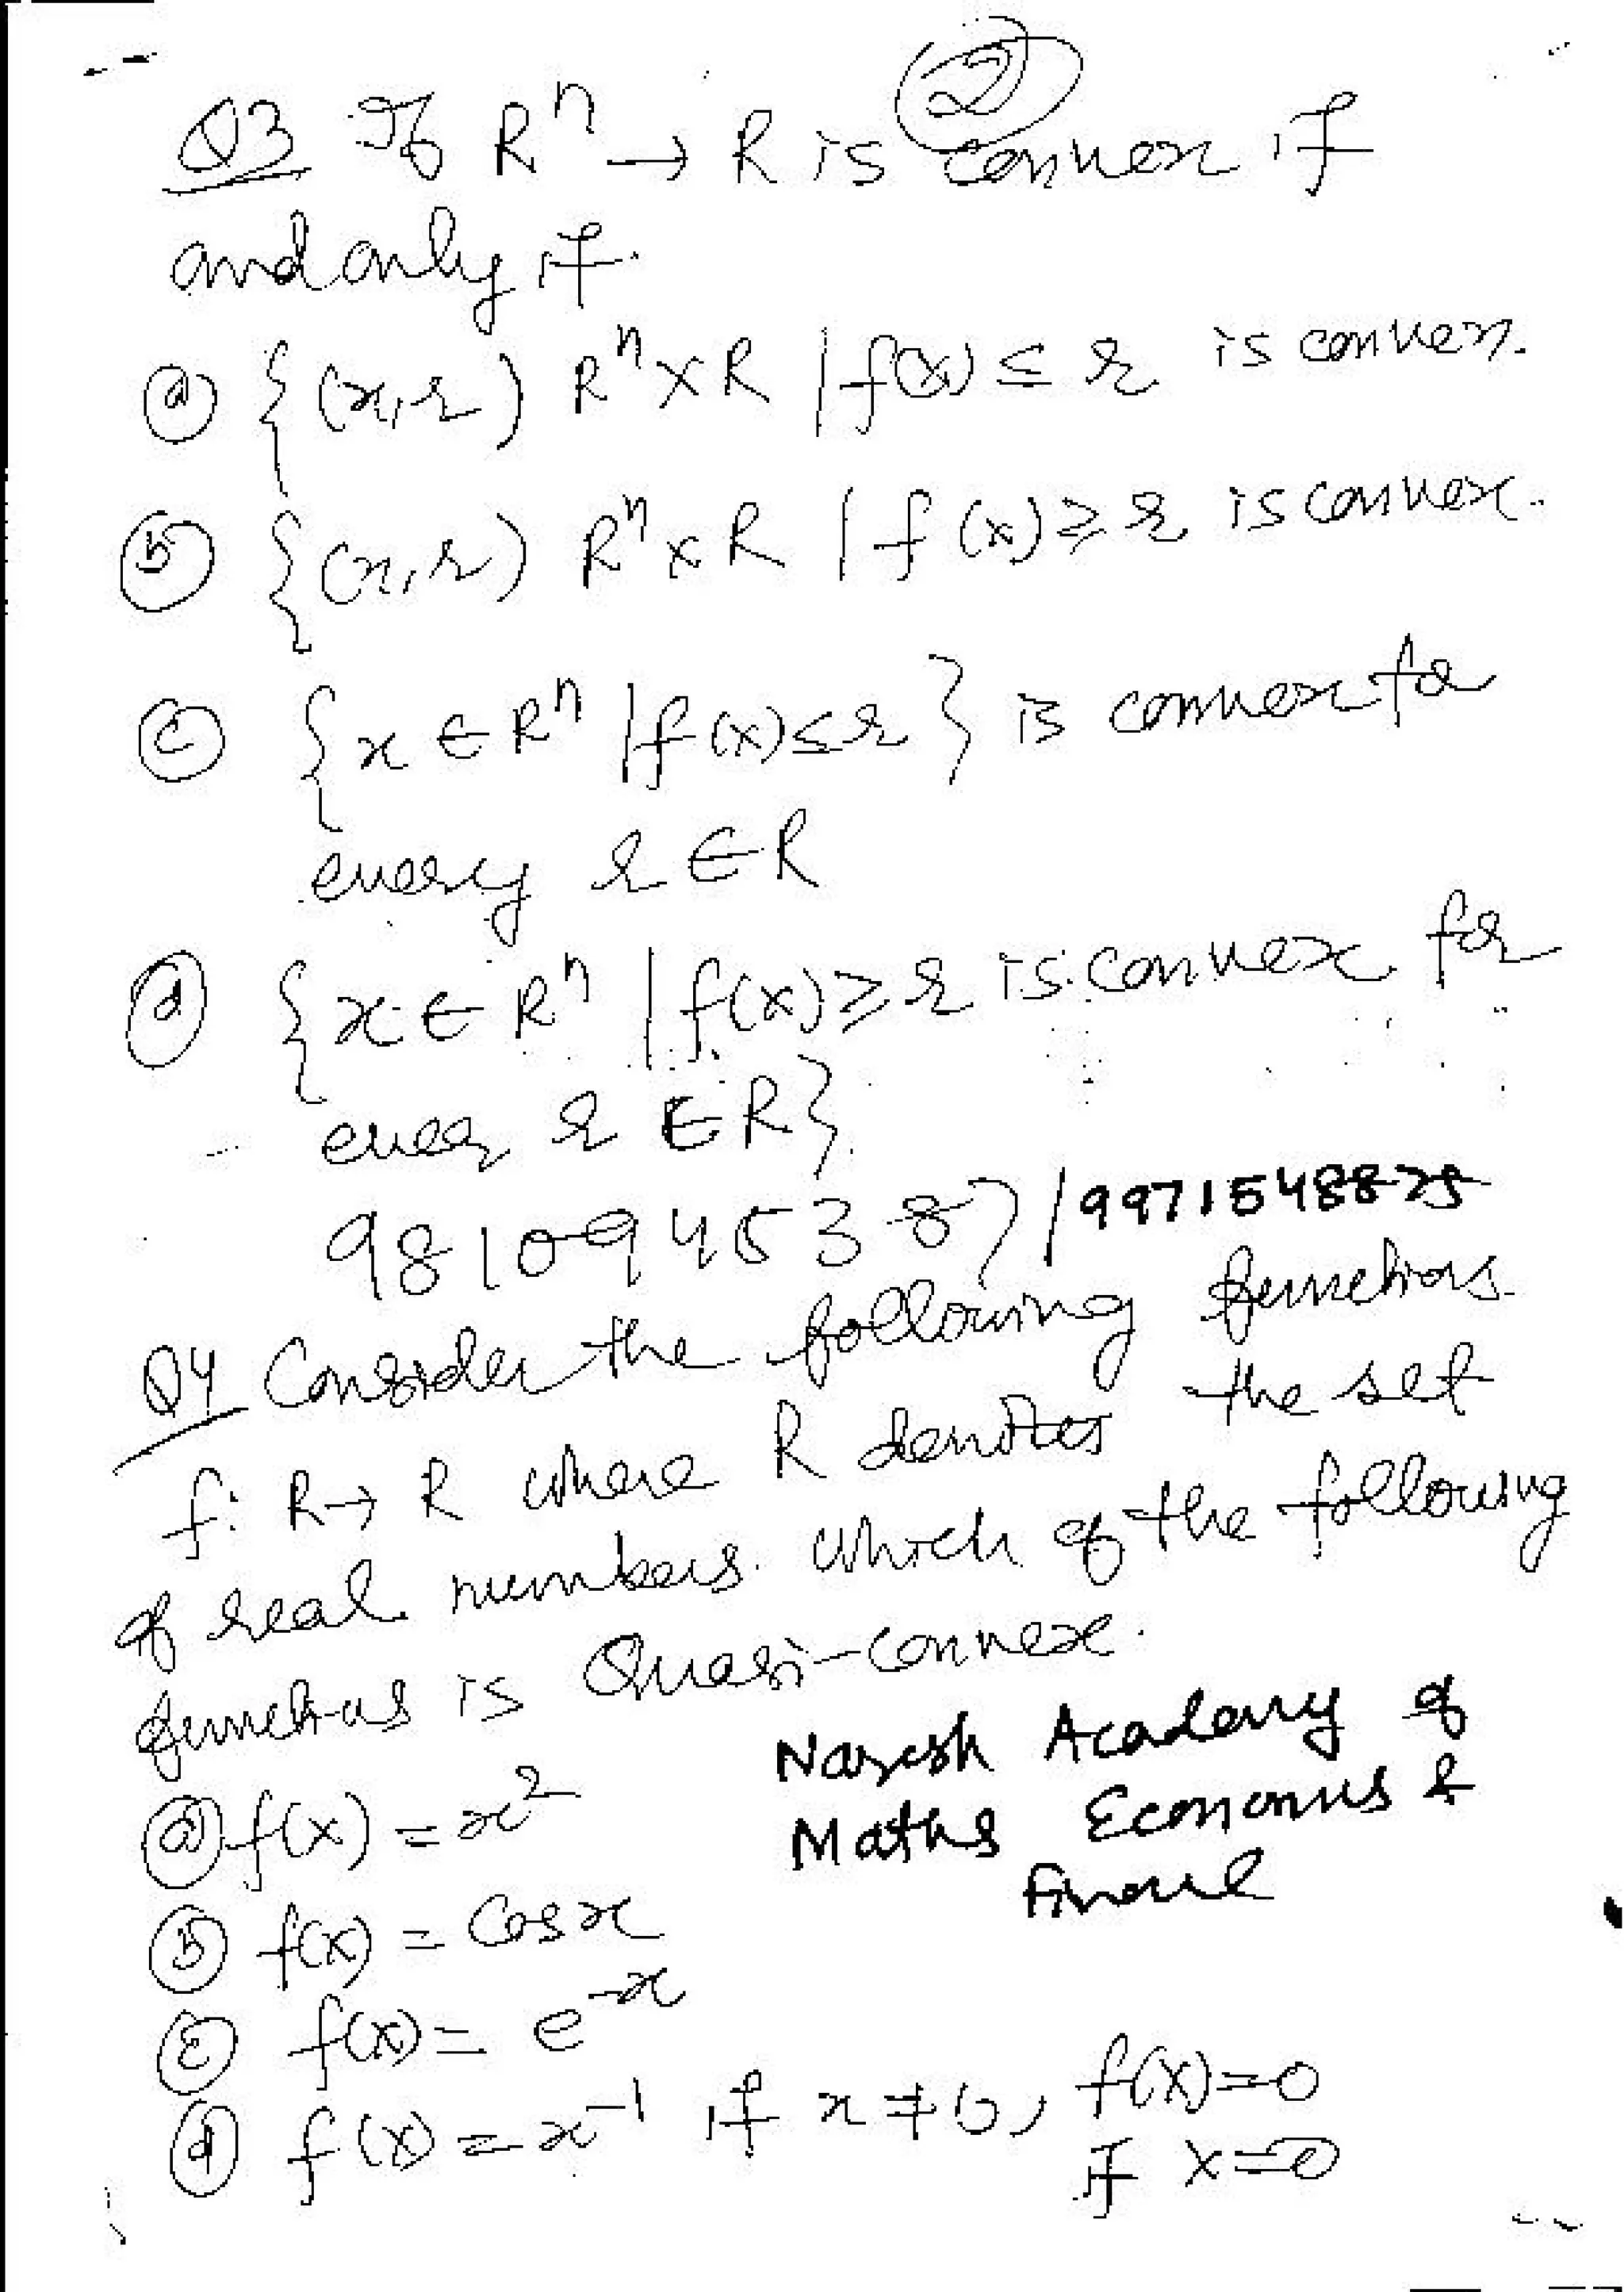 2
Q3 If Rⁿ → R is convex if
and only if
(a) {(x,r) Rⁿ×R | f(x) ≤ r is convex.
(b) {(x,r) Rⁿ×R | f(x) ≥ r is convex.
(c) {x ∈ Rⁿ | f(x) ≤ r} is convex for
every r ∈ R
(d) {x ∈ Rⁿ | f(x) ≥ r is convex for
every r ∈ R}
9810945387/9971548825
Q4 Consider the following functions
f: R → R where R denotes the set
of real numbers. Which of the following
functions is Quasi-convex.
Naresh Academy of
Maths Economics &
Finance
(a) f(x) = x²
(b) f(x) = Cos x
(c) f(x) = e⁻ˣ
(d) f(x) = x⁻¹ if x ≠ 0, f(x)=0
if x=0